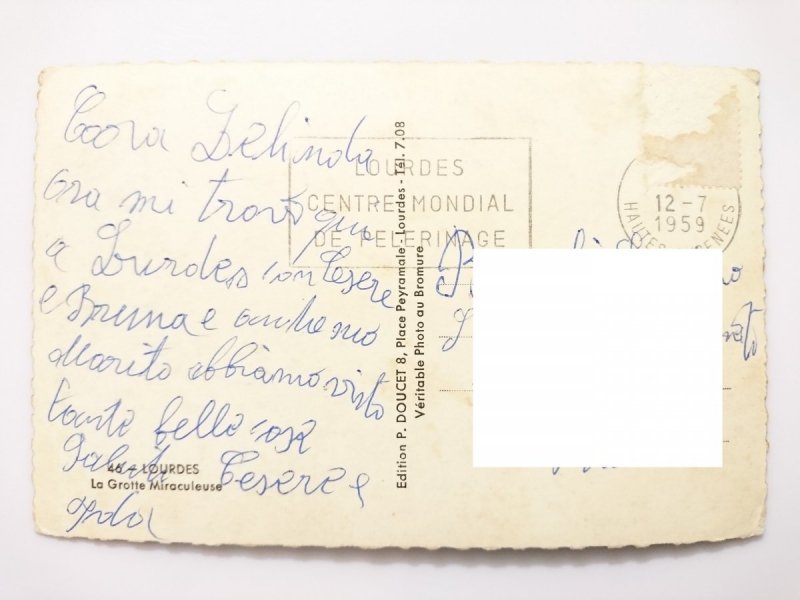 Cara Delinda
ora mi trovo qui
a Lurdes con Cesere
e Bruna e anche mo
Marito abbiamo visto
tante belle cose
Saluti Cesere e
Ida
46 - LOURDES
La Grotte Miraculeuse
LOURDES
CENTRE MONDIAL
DE PELERINAGE
Edition P. DOUCET 8, Place Peyramale - Lourdes - Tél. 7.08
Véritable Photo au Bromure
12-7
1959